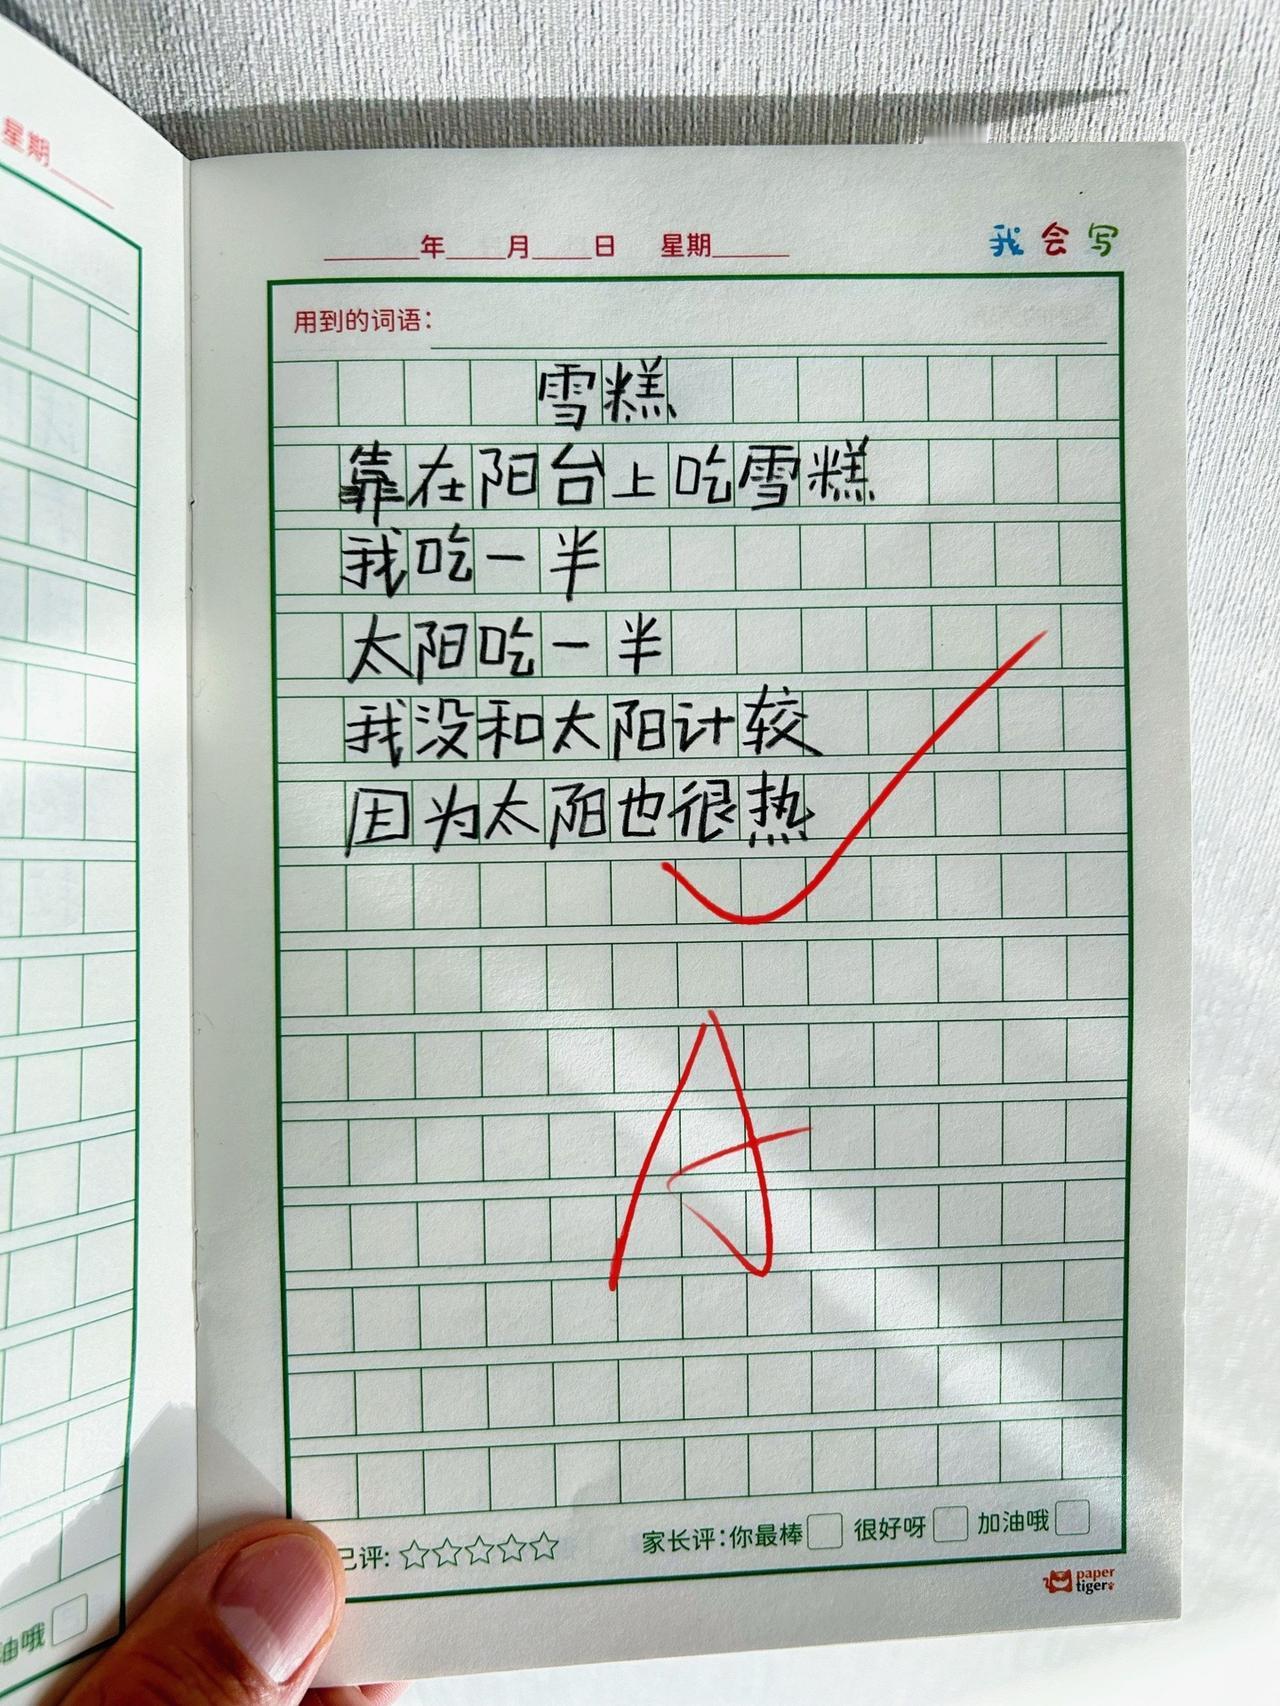 星期
年 月 日 星期
我会写
用到的词语：
雪糕
靠在阳台上吃雪糕
我吃一半
太阳吃一半
我没和太阳计较
因为太阳也很热
A
己评:☆☆☆☆☆ 家长评:你最棒□ 很好呀□ 加油哦□
paper
tiger
油哦□